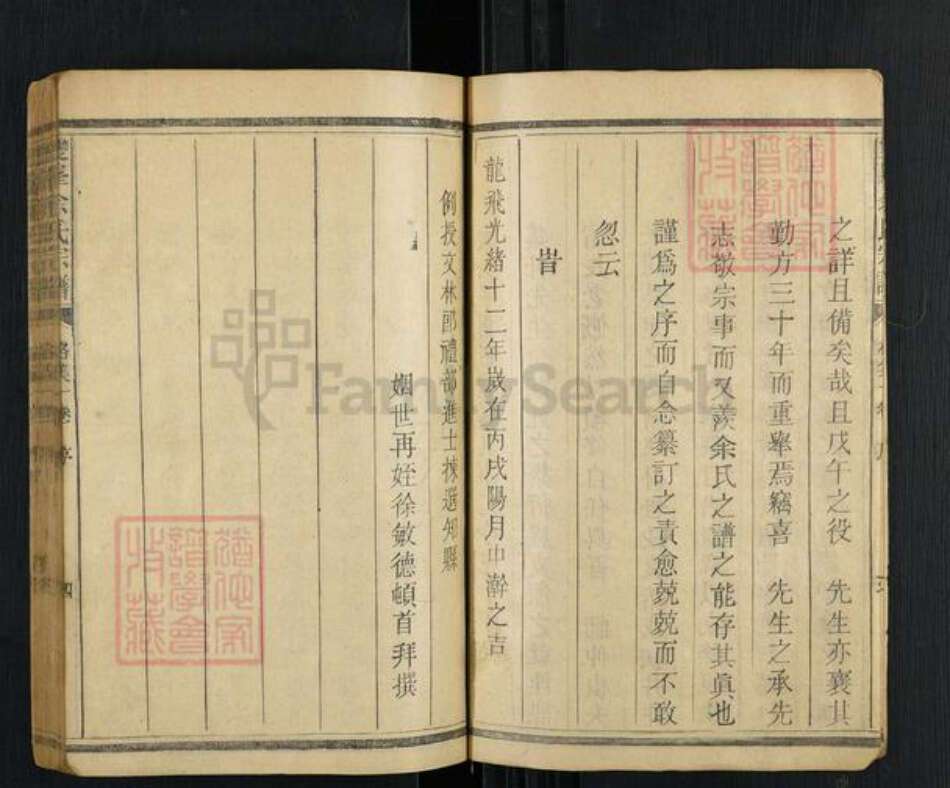 之詳且備矣哉且戊午之役 先生亦襄其
勤方三十年而重舉焉竊喜 先生之承先
志敬宗事而又羨余氏之譜之能存其眞也
謹爲之序而自念纂訂之責愈兢兢而不敢
忽云
旹
龍飛光緒十二年歲在丙戌陽月中澣之吉
例授文林郎禮部進士揀選知縣
姻世再姪徐敏德頓首拜撰
余氏宗譜
卷
序
四
FamilySearch
譜學會
收藏
譜學會
收藏